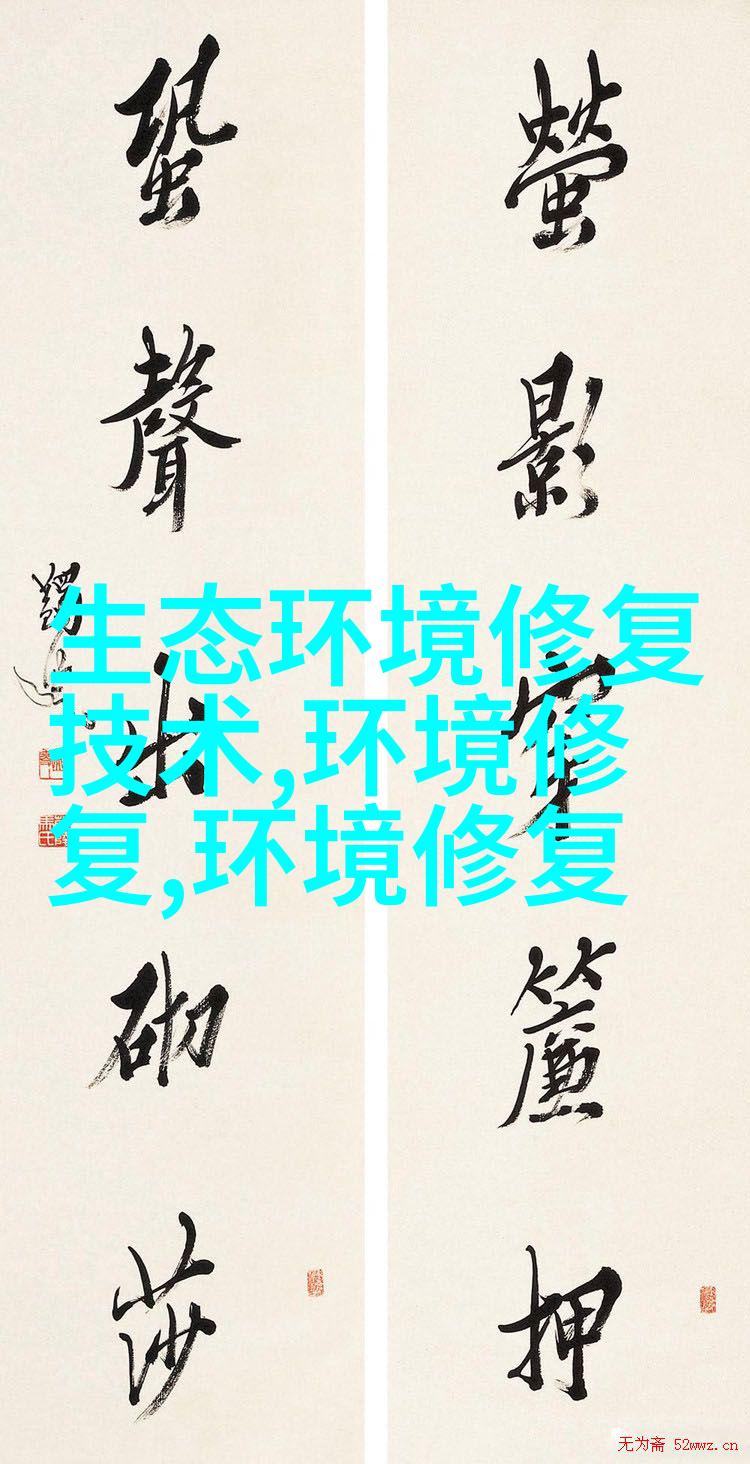 螢影穿簾押
蛩聲出砌莎
蠲叟
生态环境修复
技术,环境修
复,环境修复
无为斋 52wwz.cn